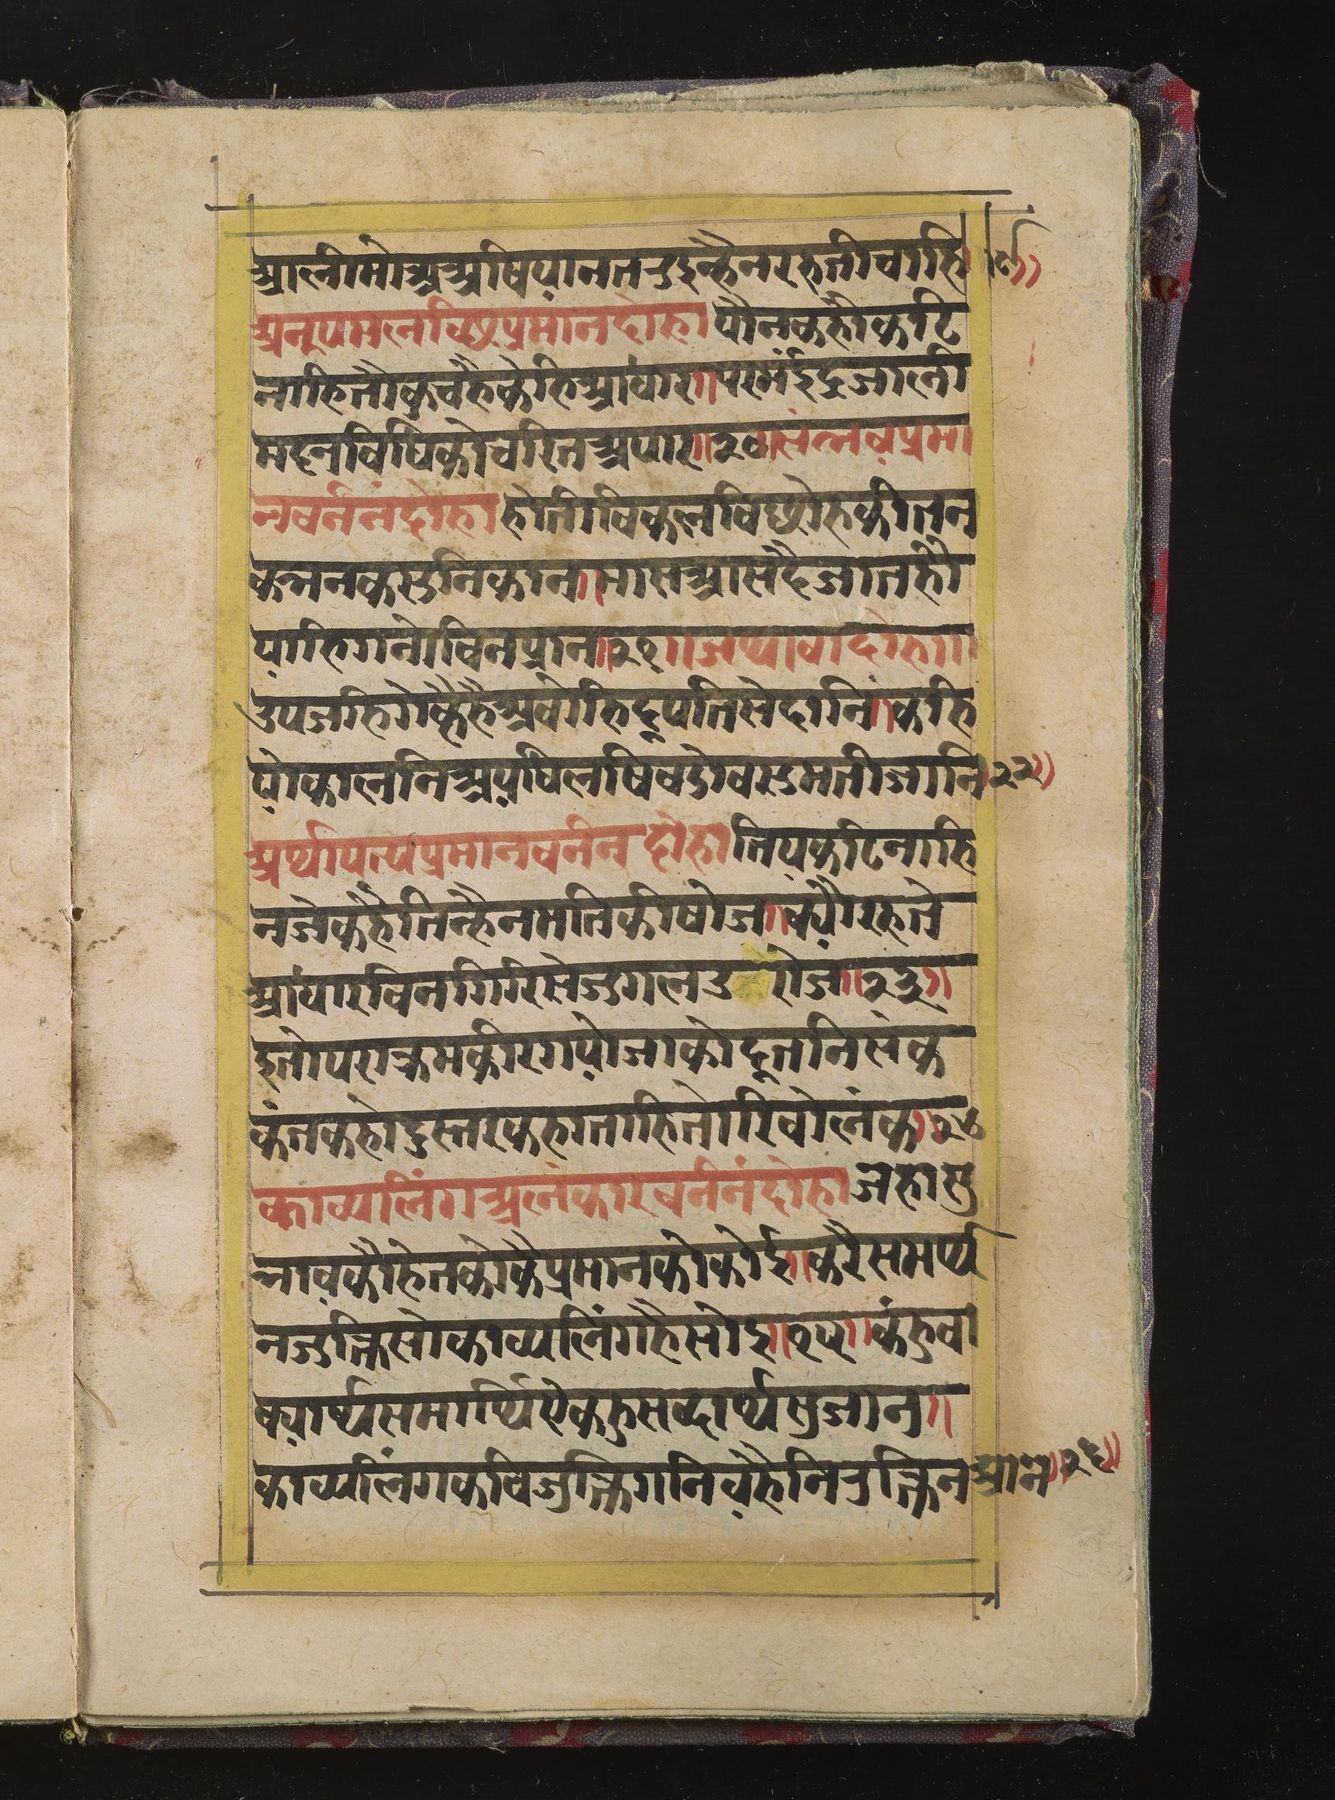 आलीमोअअषियानतउइन्हैनरहतीचाहि ॥१९॥
अनूपमलविष्टप्रमानदोहा जौनकहौकटि
नाहितौकुचहैकेहिआधार॥परमइंद्रजाली
मदनविधिकोचरितअपार॥२०॥संलवप्रमा
नवर्ननंदोहा होतीविकलविछोहकीतन
कभनकसुनिकान॥मासआसदैजातहौ
याहिगनोविनप्रान॥२१॥जथावादोहा॥
उपजहिगेव्हैहैअवौहिदूपतिसेदानि॥कहि
योकालनिअयषिलषिवडोवसुमतीजानि॥२२॥
अर्थापत्यप्रमानवर्नन दोहा तियकटिनाहि
नजेकहैतिन्हैनमतिकीषोज॥क्यौरहते
आधारविनगिरिसेजुगलउरोज॥२३॥
इतोपराक्रमकरिगयोजाकोदूतनिसंक
कंतकहोदुस्तरकहाताहितोरिवोलंक॥२४
काव्यलिंगअलंकारवर्ननंदोहा जहासु
भावकौहेतकोकैप्रमानकोकोइ॥करैसमर्थ
नजुक्तिसोकाव्यलिंगहैसोइ॥२५॥कंहुवा
क्यार्थसमर्थिऐकहुसब्दार्थसुजान॥
काव्यलिंगकविजुक्तिगनिवहैनिरुक्तिनआन॥२६॥